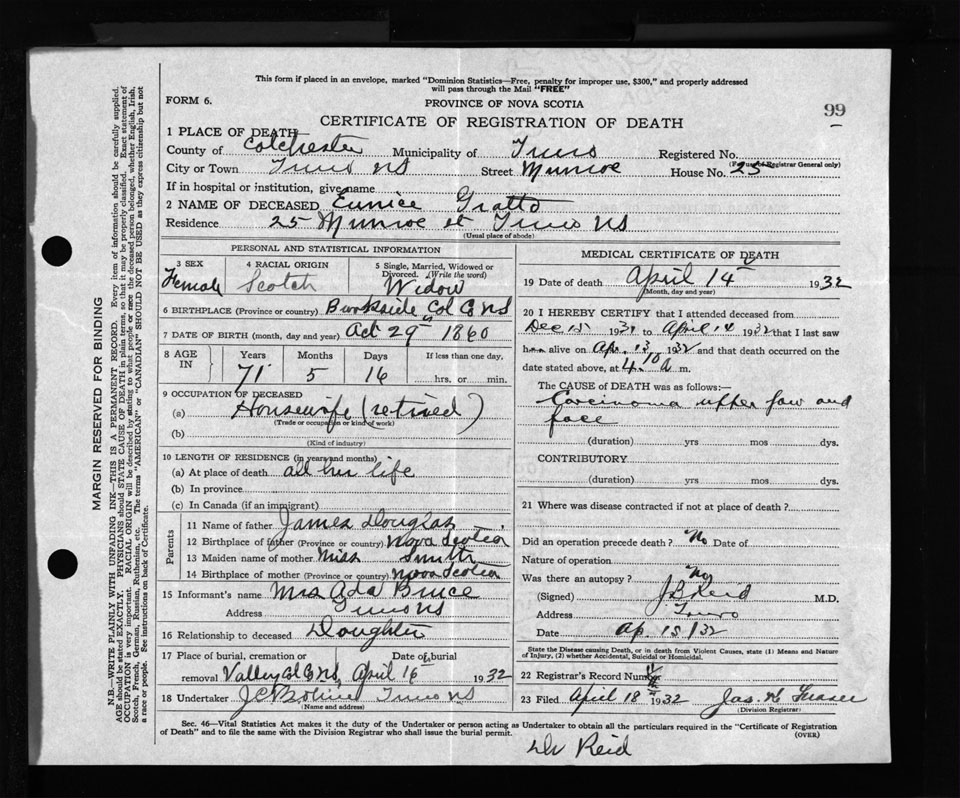 This form if placed in an envelope, marked "Dominion Statistics—Free, penalty for improper use, $300," and properly addressed
will pass through the Mail "FREE"
FORM 6.
PROVINCE OF NOVA SCOTIA
99
CERTIFICATE OF REGISTRATION OF DEATH
1 PLACE OF DEATH
County of Colchester Municipality of Truro Registered No.
(For use of Registrar General only)
City or Town Truro NS Street Munroe House No. 25
If in hospital or institution, give name
2 NAME OF DECEASED Eunice Gratto
Residence 25 Munroe st Truro NS
(Usual place of abode)
PERSONAL AND STATISTICAL INFORMATION
3 SEX 4 RACIAL ORIGIN 5 Single, Married, Widowed or
Divorced. (Write the word)
Female Scotch Widow
6 BIRTHPLACE (Province or country) Burkside Col Co NS
7 DATE OF BIRTH (month, day and year) Oct 29 1860
8 AGE IN Years Months Days If less than one day,
71 5 16 hrs. or min.
9 OCCUPATION OF DECEASED
(a) Housewife (retired)
(Trade or occupation or kind of work)
(b)
(Kind of industry)
10 LENGTH OF RESIDENCE (in years and months)
(a) At place of death all her life
(b) In province
(c) In Canada (if an immigrant)
Parents
11 Name of father James Douglas
12 Birthplace of father (Province or country) Nova Scotia
13 Maiden name of mother Miss Smith
14 Birthplace of mother (Province or country) Nova Scotia
15 Informant's name Mrs Ada Bruce
Address Truro NS
16 Relationship to deceased Daughter
17 Place of burial, cremation or Date of burial
removal Valley Col Co NS April 16 1932
18 Undertaker J C Truro NS
(Name and address)
MEDICAL CERTIFICATE OF DEATH
19 Date of death April 14 1932
(Month, day and year)
20 I HEREBY CERTIFY that I attended deceased from
Dec 15 1931 to April 14 1932 that I last saw
h alive on Ap. 13 1932 and that death occurred on the
date stated above, at 4.10 a m.
The CAUSE of DEATH was as follows:—
Carcinoma upper jaw and
face
(duration) yrs mos dys.
CONTRIBUTORY
(duration) yrs mos dys.
21 Where was disease contracted if not at place of death?
Did an operation precede death? No Date of
Nature of operation
Was there an autopsy? No
(Signed) J B Reid M.D.
Address Truro
Date Ap. 15/32
State the Disease causing Death, or in death from Violent Causes, state (1) Means and Nature
of Injury, (2) whether Accidental, Suicidal or Homicidal.
22 Registrar's Record Number
23 Filed April 18 1932 Jas H Fraser
(Division Registrar)
Sec. 46—Vital Statistics Act makes it the duty of the Undertaker or person acting as Undertaker to obtain all the particulars required in the "Certificate of Registration
of Death" and to file the same with the Division Registrar who shall issue the burial permit.
(OVER)
Dr Reid
MARGIN RESERVED FOR BINDING
N.B.—WRITE PLAINLY WITH UNFADING INK—THIS IS A PERMANENT RECORD. Every item of information should be carefully supplied.
AGE should be stated EXACTLY. PHYSICIANS should STATE CAUSE OF DEATH in plain terms, so that it may be properly classified. Exact statement of
OCCUPATION is very important. RACIAL ORIGIN will be described by stating to what people or race the deceased person belonged, whether English, Irish,
Scotch, French, German, Russian, Ruthenian, etc. The terms "AMERICAN" or "CANADIAN" SHOULD NOT BE USED as they express citizenship but not
a race or people. See instructions on back of Certificate.